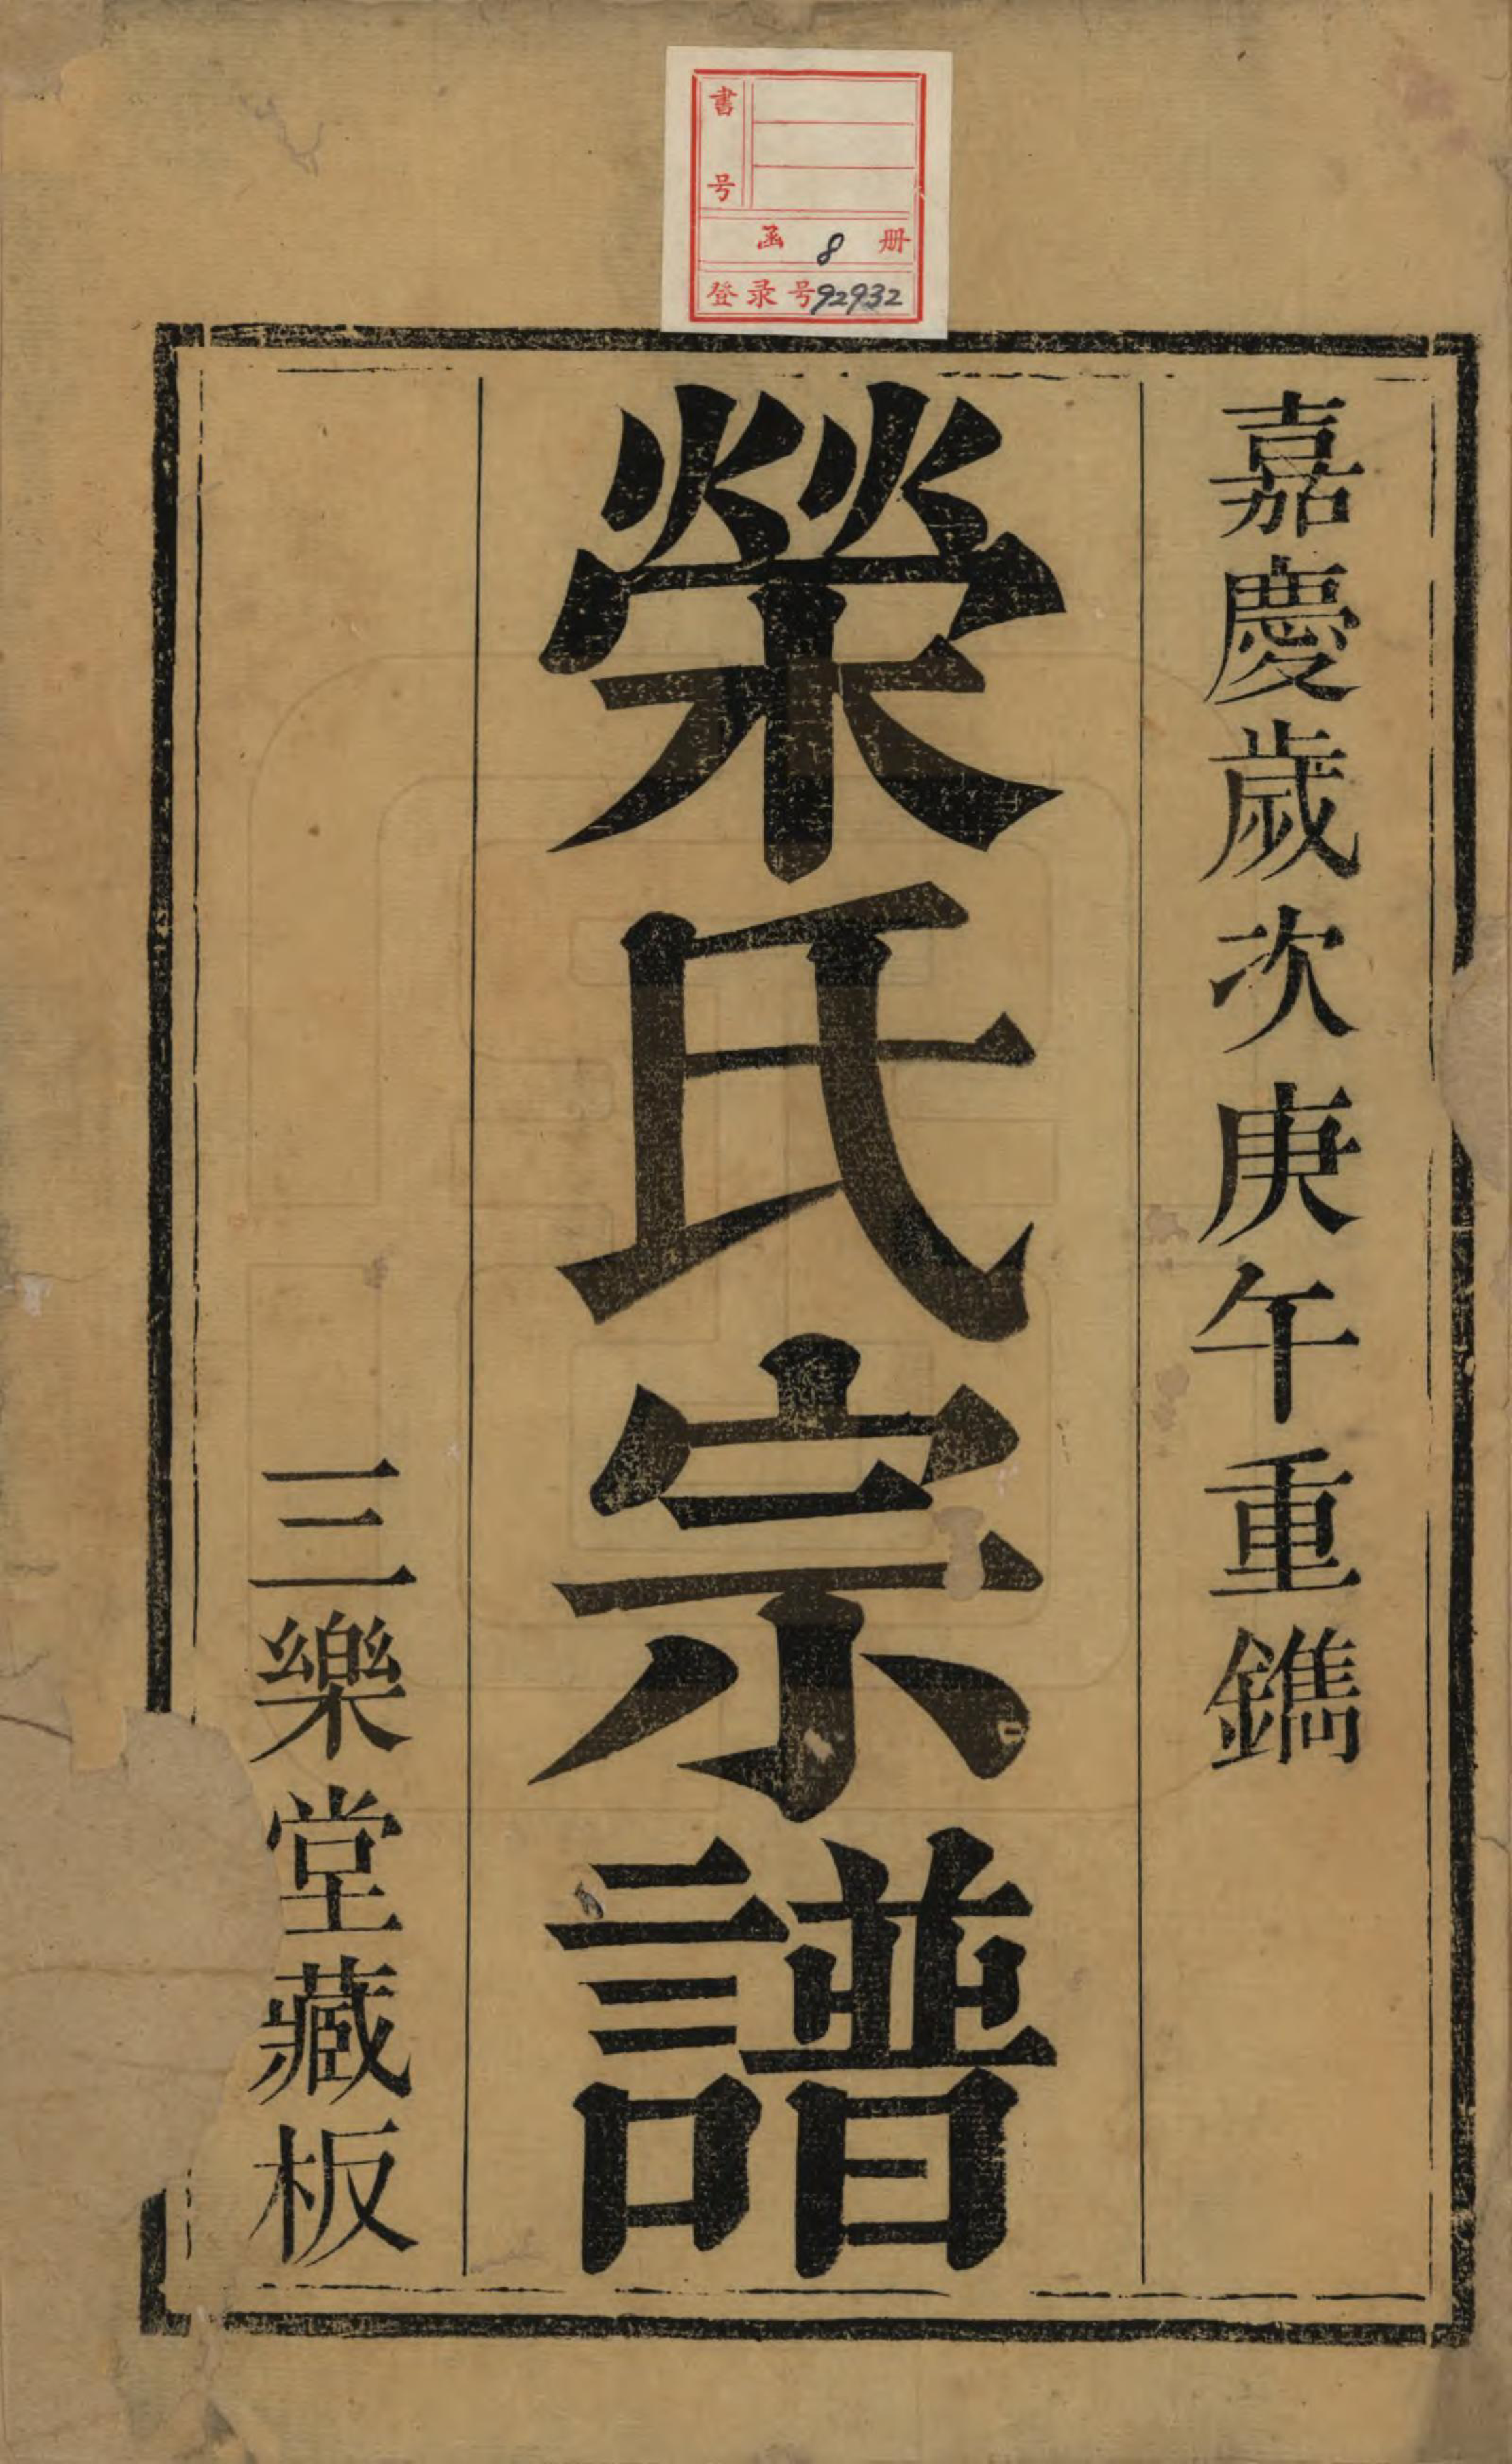 書号
函 8 册
登录号92932
嘉慶歲次庚午重鐫
榮氏宗譜
三樂堂藏板